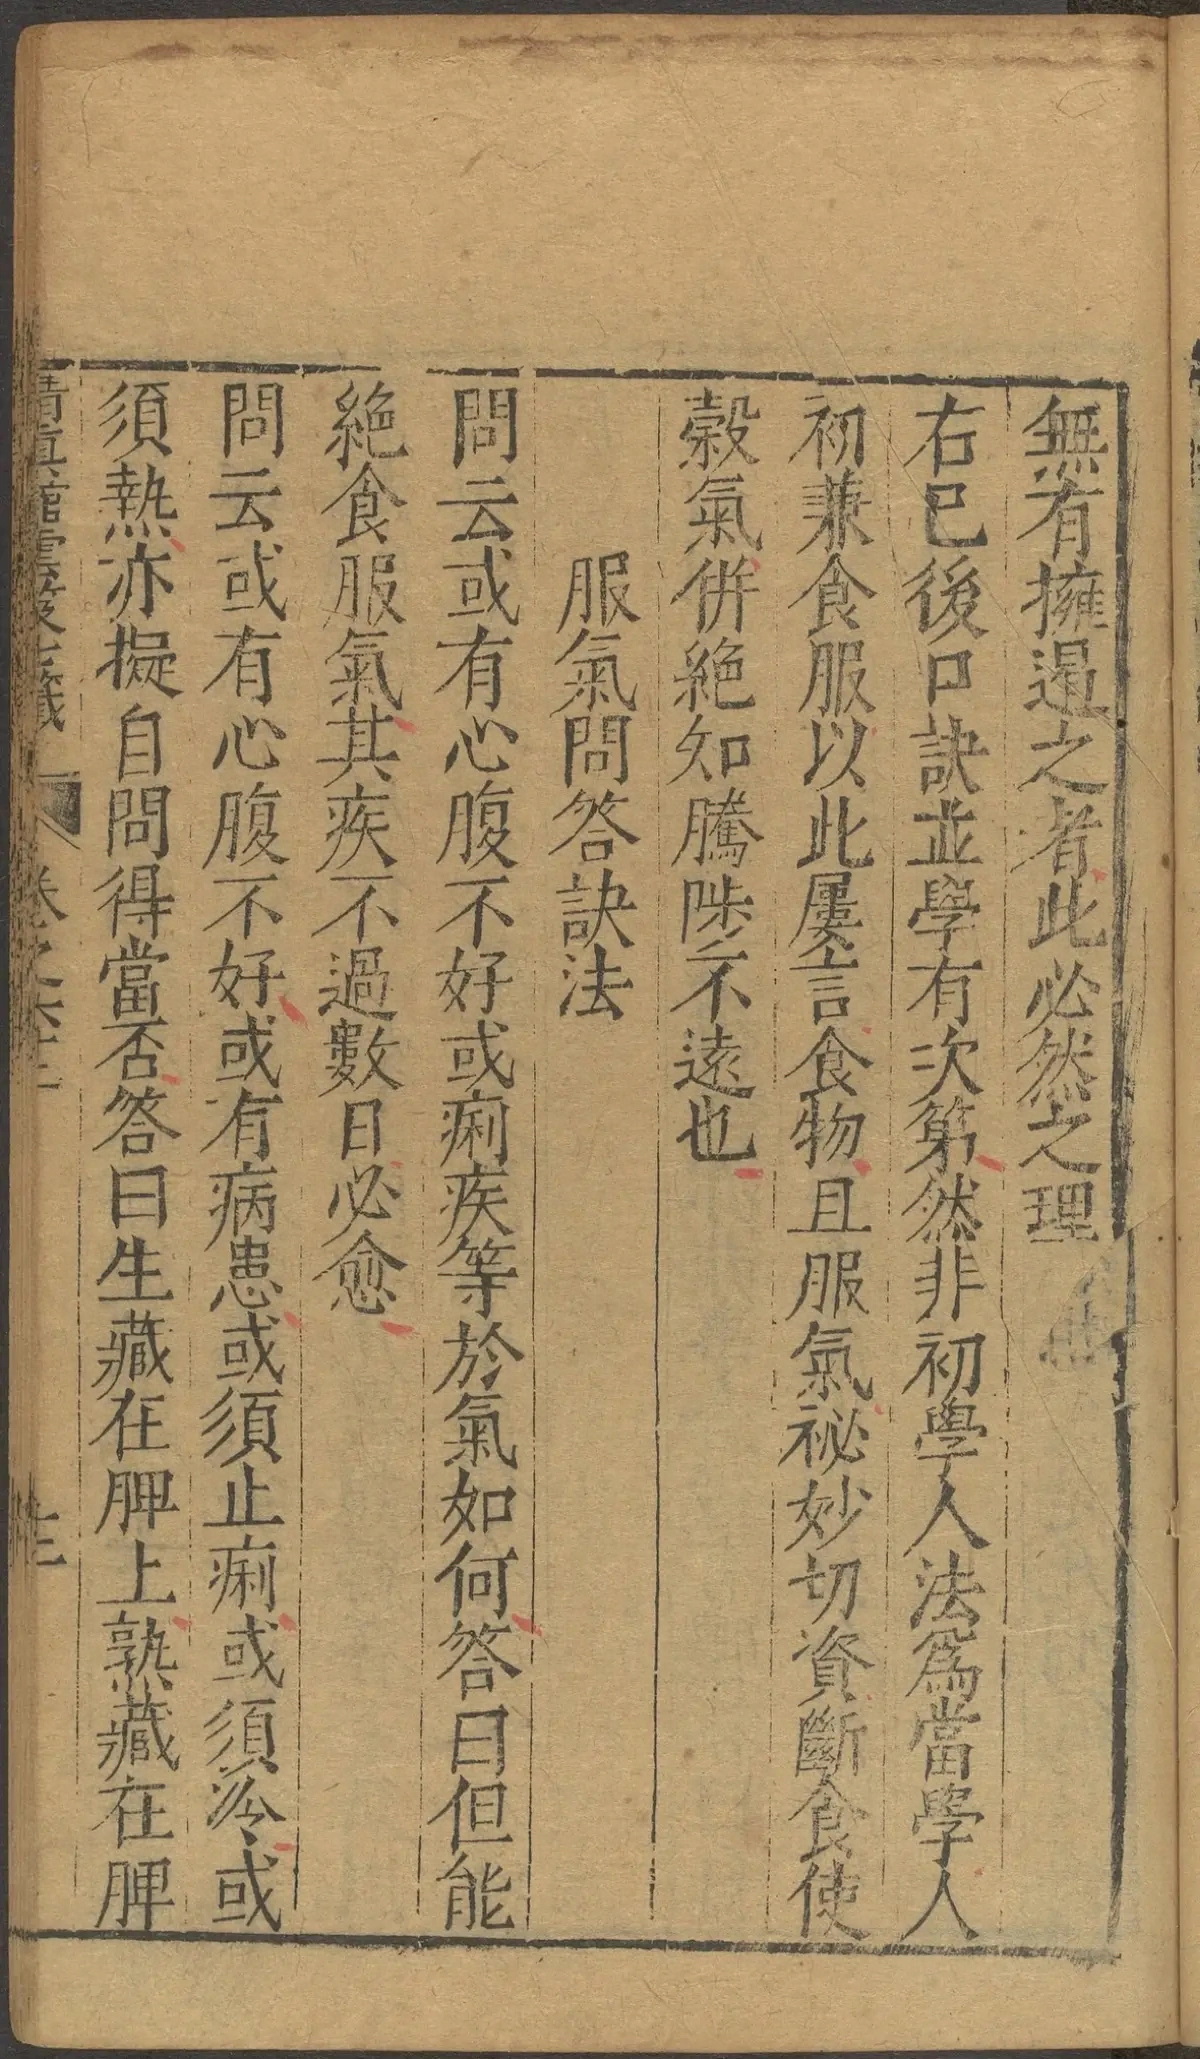 無有擁遏之者此必然之理
右已後口訣並學有次第然非初學人法爲當學人
初兼食服以此屢言食物且服氣祕妙切資斷食使
榖氣併絕知騰陟不遠也
服氣問答訣法
問云或有心腹不好或痢疾等於氣如何答曰但能
絕食服氣其疾不過數日必愈
問云或有心腹不好或有病患或須止痢或須冷或
須熱亦擬自問得當否答曰生藏在脾上熟藏在脾
清真館雲笈七籤 卷之六十二 十三